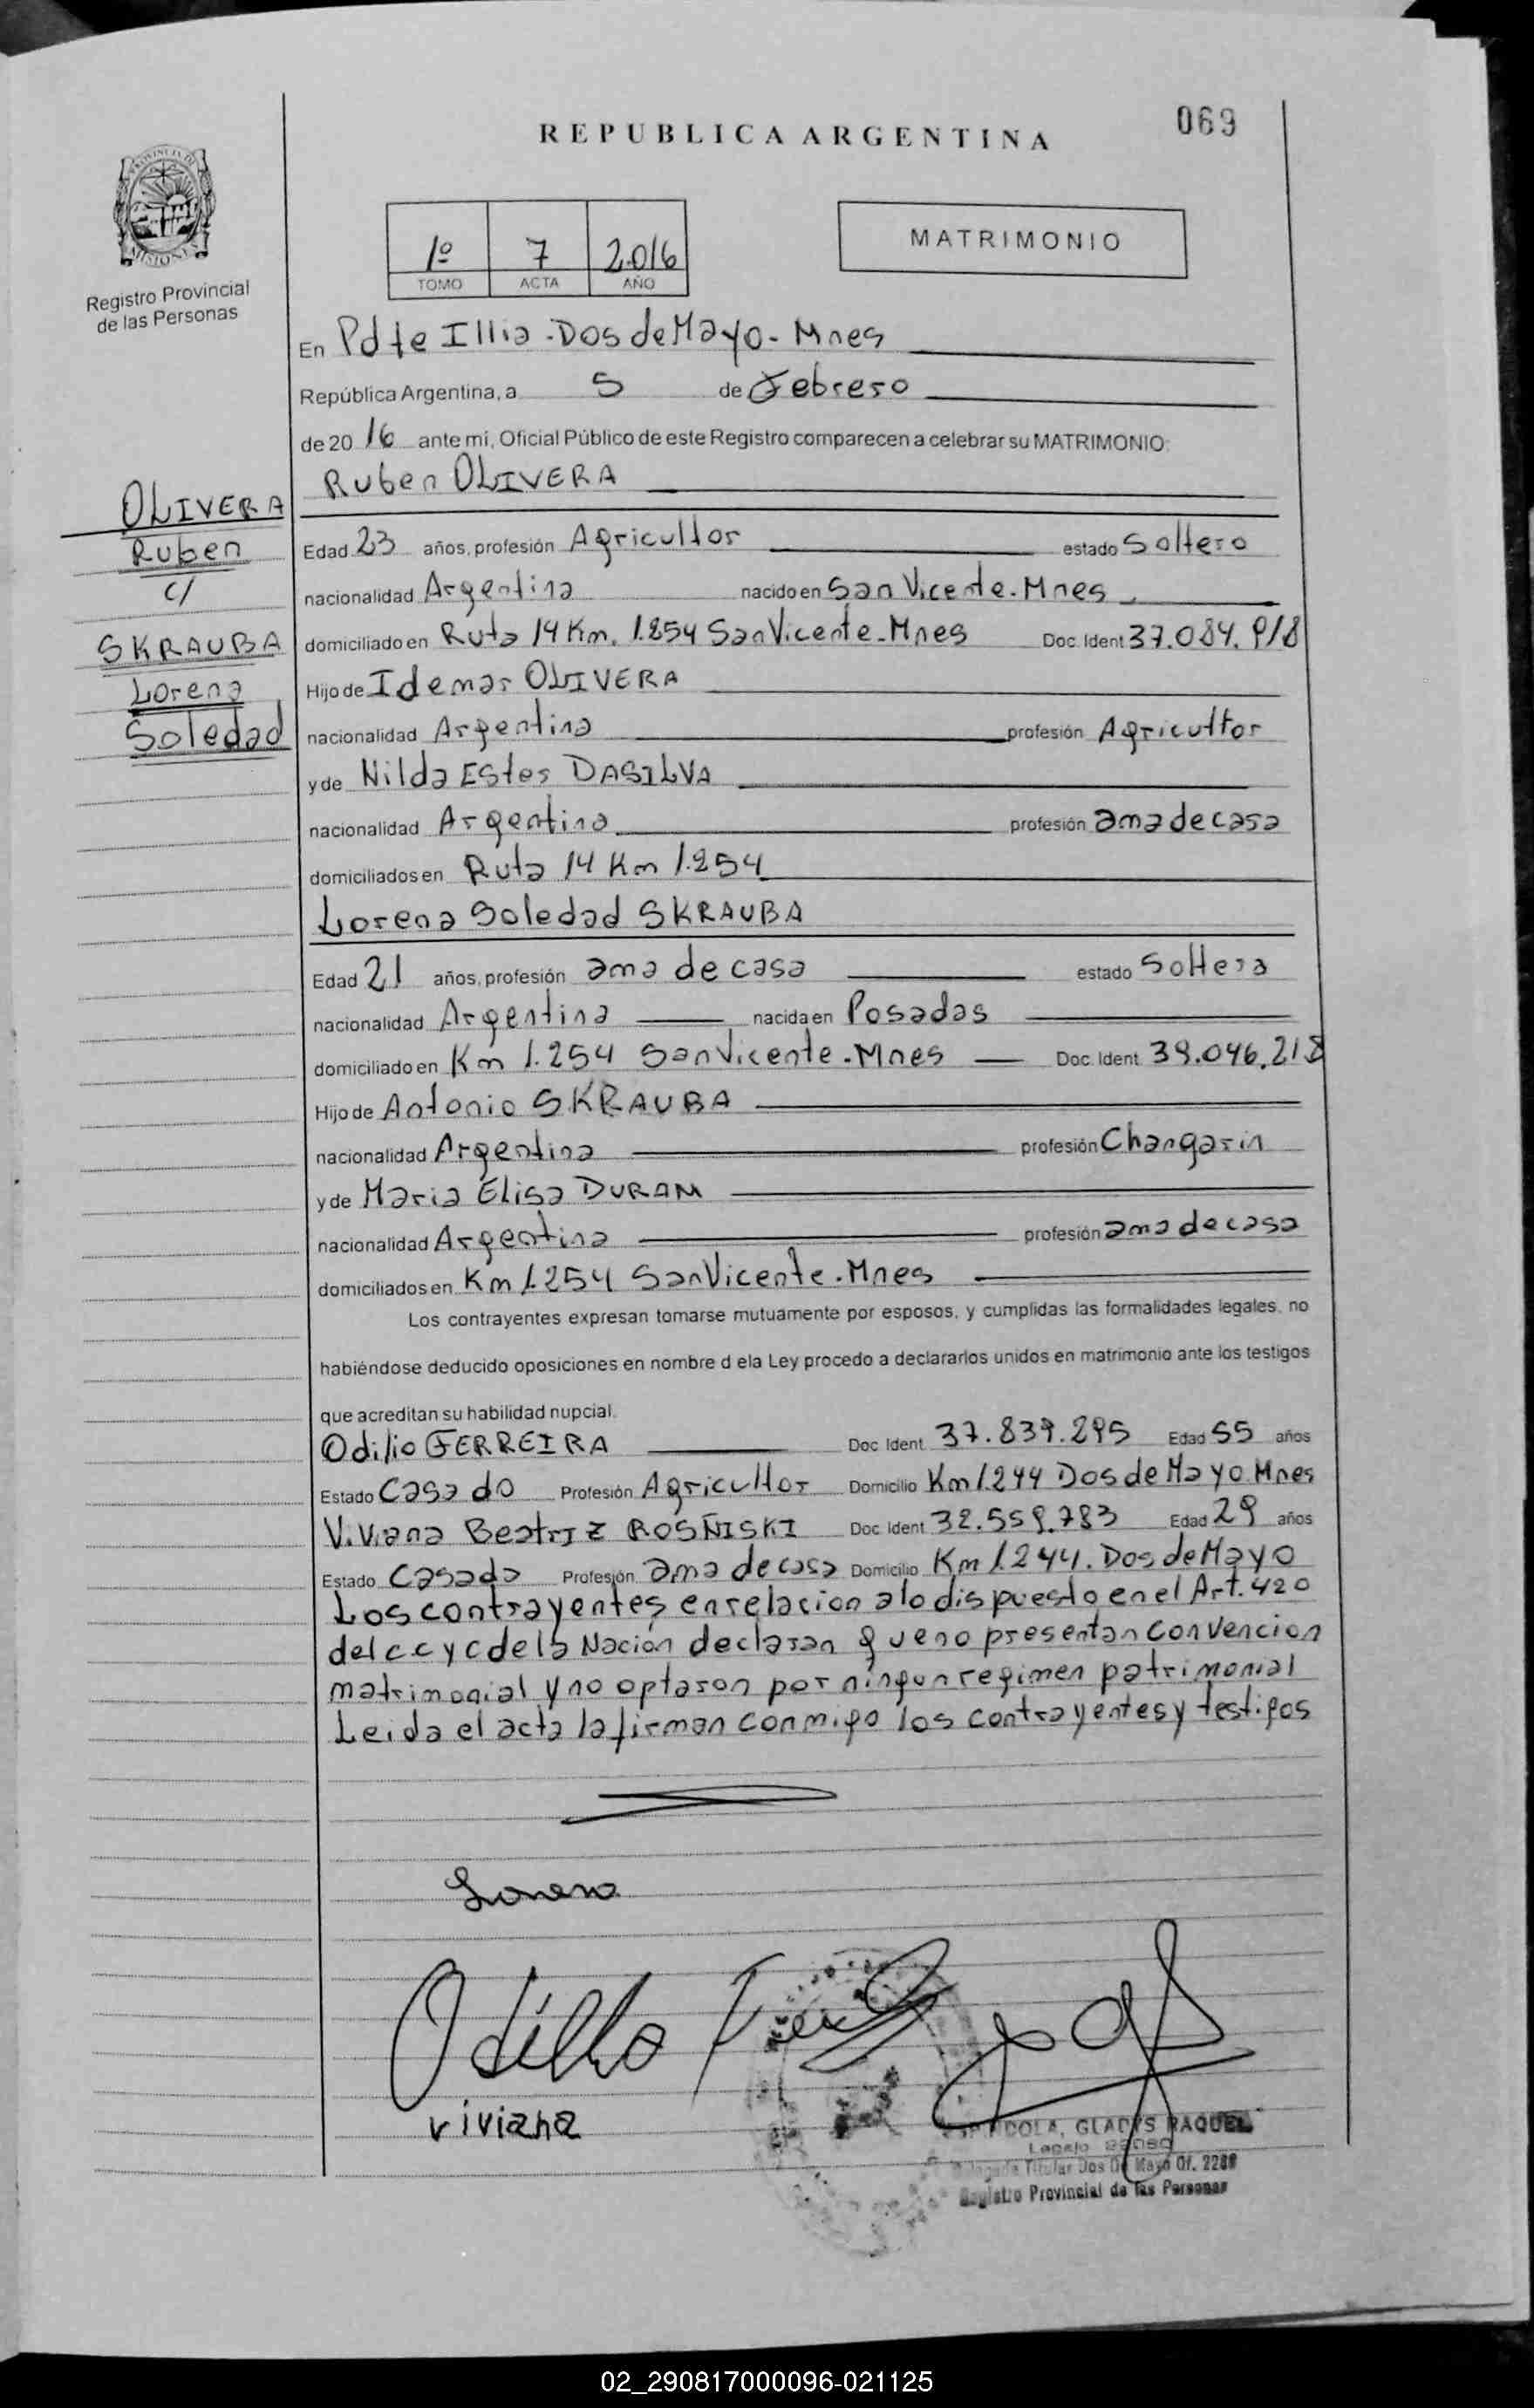 069
REPUBLICA ARGENTINA
PROVINCIA DE
MISIONES
Registro Provincial
de las Personas
1º 7 2016
TOMO ACTA AÑO
MATRIMONIO
En Pdte Illia - Dos de Mayo - Mnes
República Argentina, a 5 de Febrero
de 20 16 ante mi, Oficial Público de este Registro comparecen a celebrar su MATRIMONIO:
Ruben OLIVERA
OLIVERA
Ruben
c/
SKRAUBA
Lorena
Soledad
Edad 23 años, profesión Agricultor estado Soltero
nacionalidad Argentina nacido en San Vicente - Mnes
domiciliado en Ruta 14 Km. 1.254 San Vicente - Mnes Doc. Ident 37.084.918
Hijo de Idemar OLIVERA
nacionalidad Argentina profesión Agricultor
y de Nilda Ester DASILVA
nacionalidad Argentina profesión ama de casa
domiciliados en Ruta 14 Km 1.254
Lorena Soledad SKRAUBA
Edad 21 años, profesión ama de casa estado Soltera
nacionalidad Argentina nacida en Posadas
domiciliado en Km 1.254 San Vicente - Mnes Doc. Ident. 39.046.218
Hijo de Antonio SKRAUBA
nacionalidad Argentina profesión Changarin
y de Maria Elisa DURAM
nacionalidad Argentina profesión ama de casa
domiciliados en Km 1.254 San Vicente - Mnes
Los contrayentes expresan tomarse mutuamente por esposos, y cumplidas las formalidades legales, no
habiéndose deducido oposiciones en nombre d ela Ley procedo a declararlos unidos en matrimonio ante los testigos
que acreditan su habilidad nupcial.
Odilio FERREIRA Doc. Ident. 37.839.295 Edad 55 años
Estado Casado Profesión Agricultor Domicilio Km 1.244 Dos de Mayo Mnes
Viviana Beatriz ROSÑISKI Doc. Ident 32.559.783 Edad 29 años
Estado Casada Profesión ama de casa Domicilio Km 1.244. Dos de Mayo
Los contrayentes en relacion a lo dispuesto en el Art. 420
del c.c y c de la Nación declaran que no presentan convencion
matrimonial y no optaron por ningun regimen patrimonial
Leida el acta la firman conmigo los contrayentes y testigos
Lorena
Odilio
viviana
GLADYS RAQUEL
Titular Dos De Mayo Of. 2288
Registro Provincial de las Personas
02_290817000096-021125